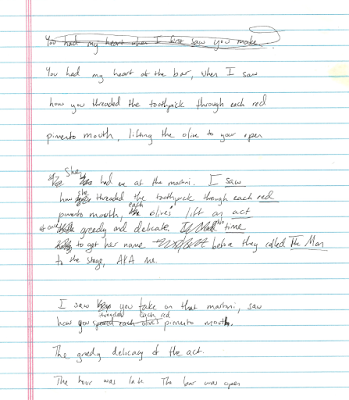 You had my heart when I first saw you make
You had my heart at the bar, when I saw
how you threaded the toothpick through each red
pimento mouth, lifting the olive to your open
She had me at the martini. I saw
how she threaded the toothpick through each red
pimento mouth, each olive's lift an act
at once greedy and delicate. time
to get her name before they called The Man
to the stage, AKA me.
I saw you take on that martini, saw
how you each red pimento mouth.
The greedy delicacy of the act.
The hour was late. The bar was open